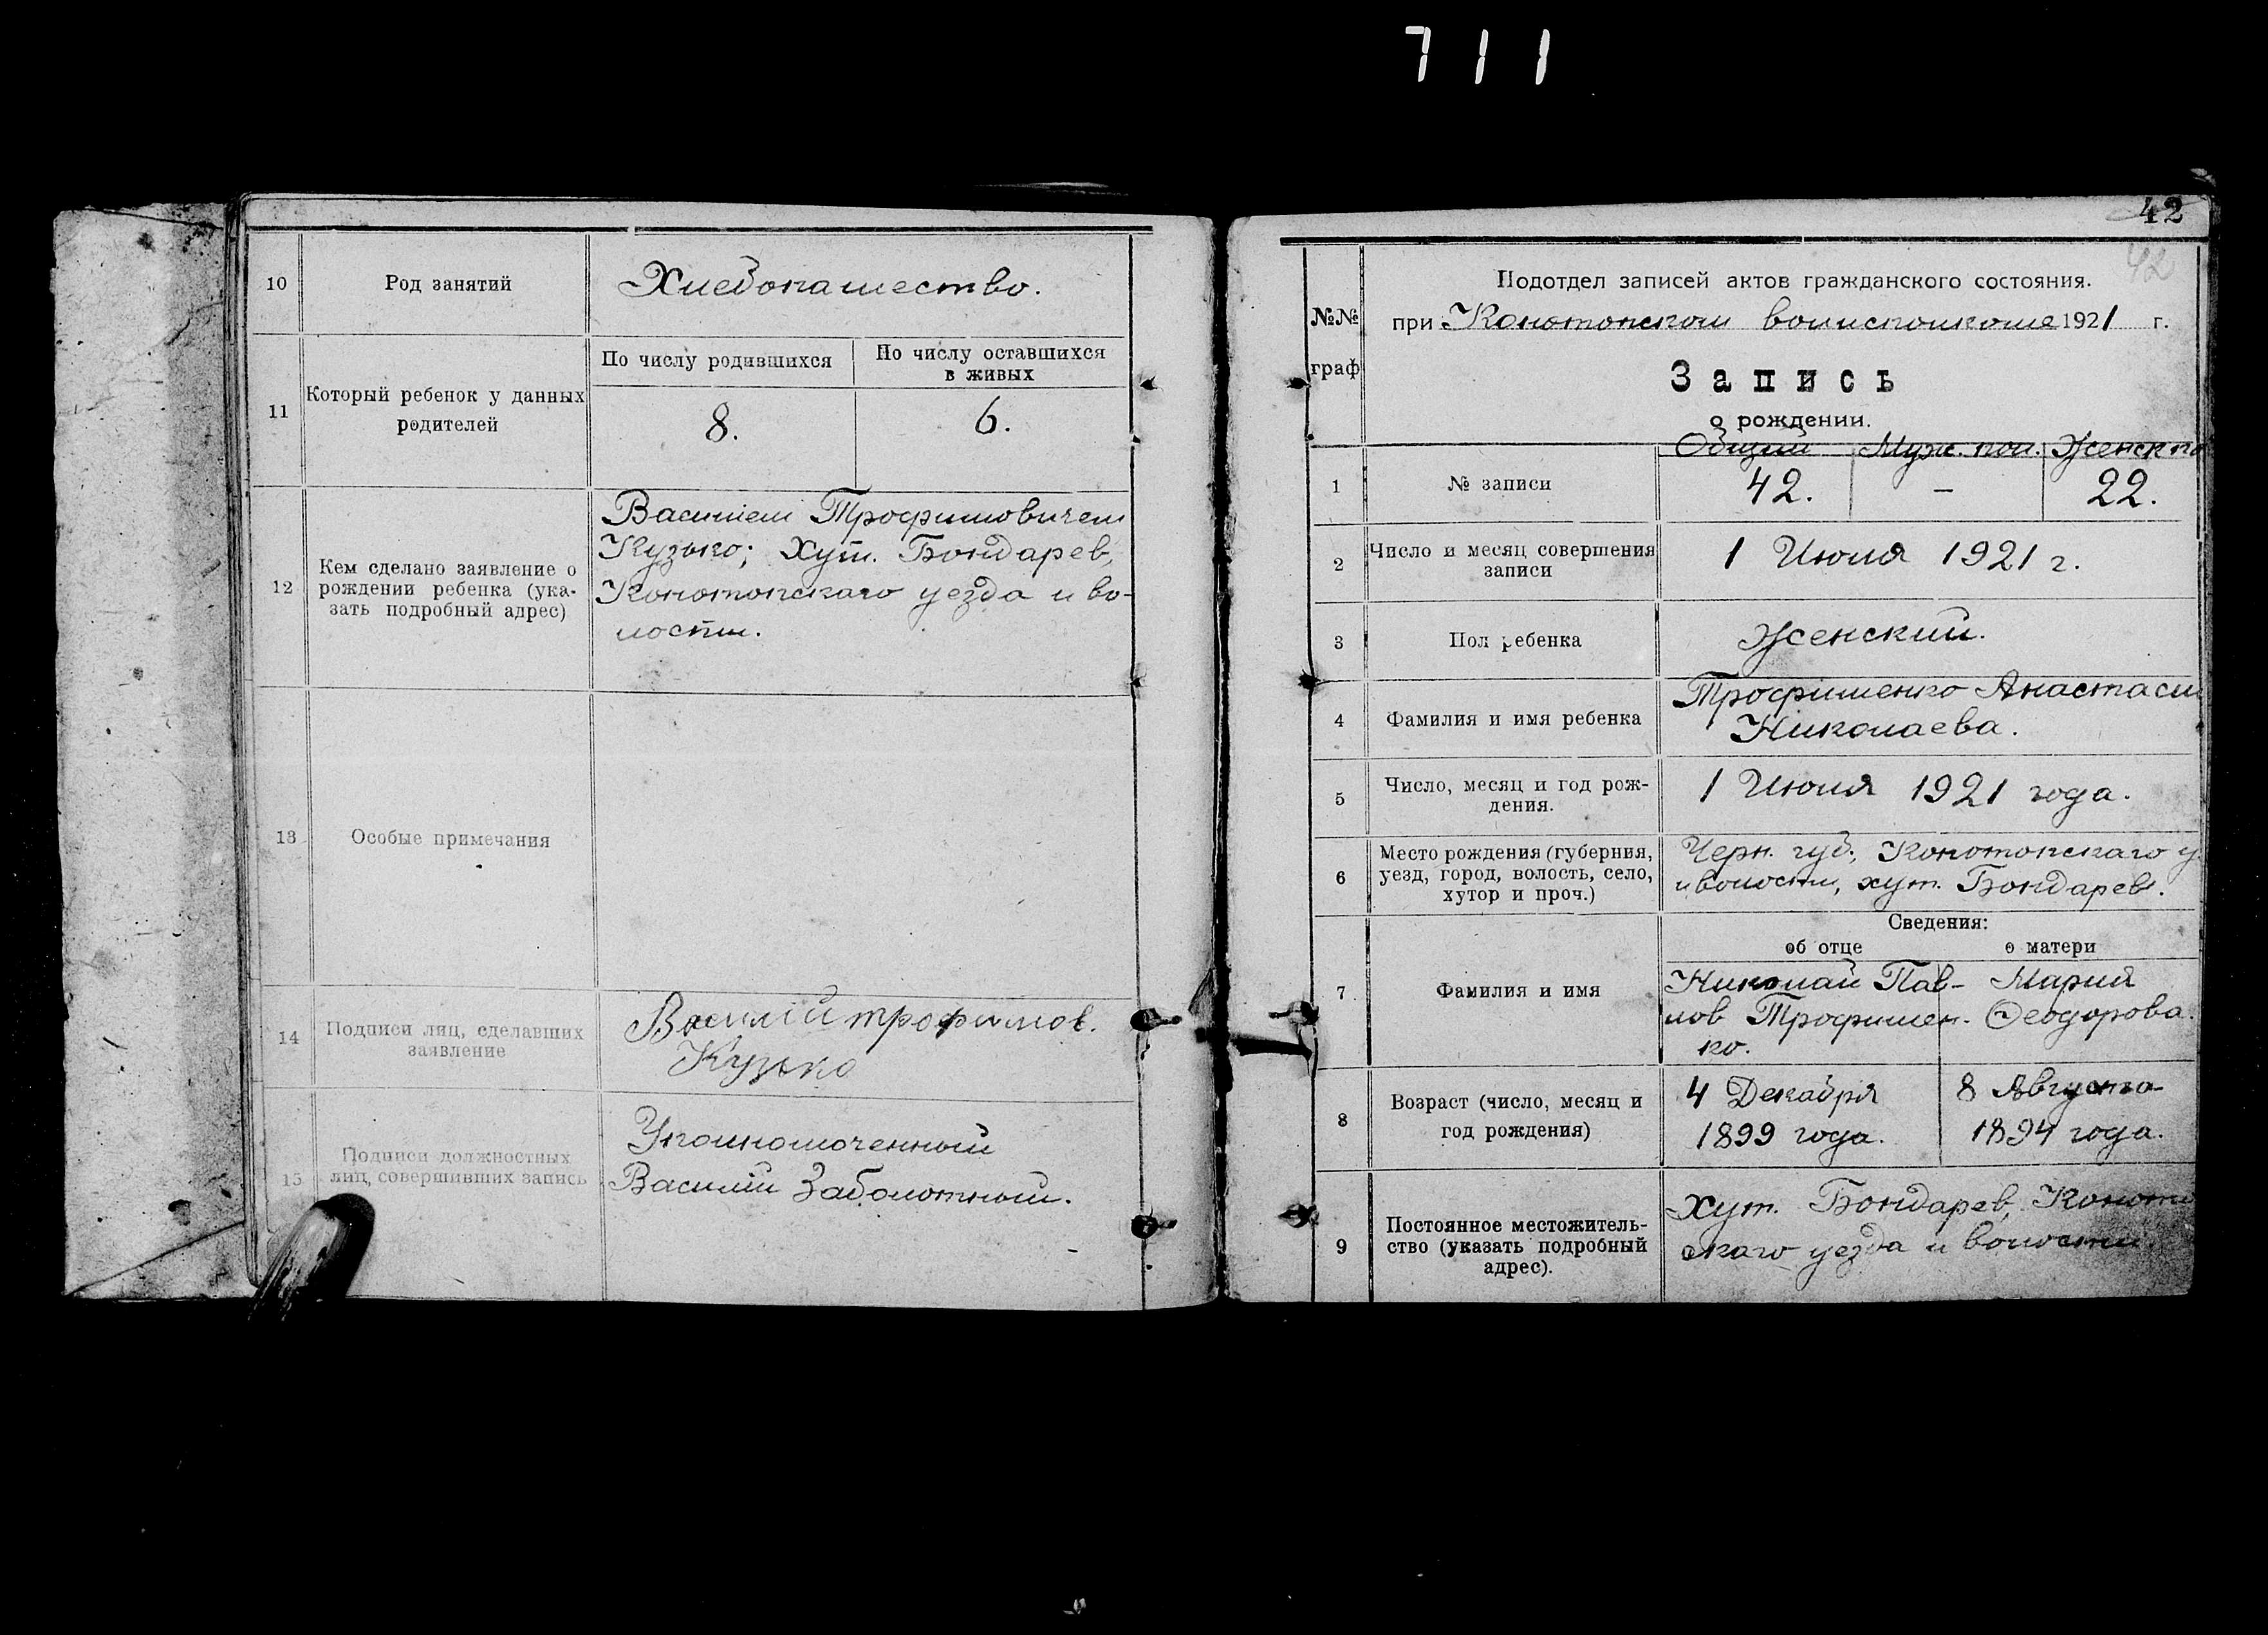 711
10
Род занятий
Хлебопашество.
11
Который ребенок у данных
родителей
По числу родившихся
По числу оставшихся
в живых
8.
6.
12
Кем сделано заявление о
рождении ребенка (ука-
зать подробный адрес)
Василием Трофимовичем
Кузько; Хут. Бондарев,
Конотопскаго уезда и во-
лости.
13
Особые примечания
14
Подписи лиц, сделавших
заявление
Василий трофимов.
Кузько
15
Подписи должностных
лиц, совершивших запись
Уполномоченный
Василий Заболотный.
42
42
№№
граф
Подотдел записей актов гражданского состояния.
при Конотопском волисполкоме 1921 г.
Запись
о рождении.
Общий Муж. пол. Женск по
1
№ записи
42. – 22.
2
Число и месяц совершения
записи
1 Июля 1921 г.
3
Пол ребенка
Женский.
4
Фамилия и имя ребенка
Трофименко Анастаси
Николаева.
5
Число, месяц и год рож-
дения.
1 Июля 1921 года.
6
Место рождения (губерния,
уезд, город, волость, село,
хутор и проч.)
Черн. губ., Конотопскаго у.
и волости, хут. Бондарев.
Сведения:
об отце
о матери
7
Фамилия и имя
Николай Пав-
лов Трофимен-
ко.
Мария
Ѳеодорова.
8
Возраст (число, месяц и
год рождения)
4 Декабря
1899 года.
8 Августа
1894 года.
9
Постоянное местожитель-
ство (указать подробный
адрес).
Хут. Бондарев, Коното
скаго уезда и волости